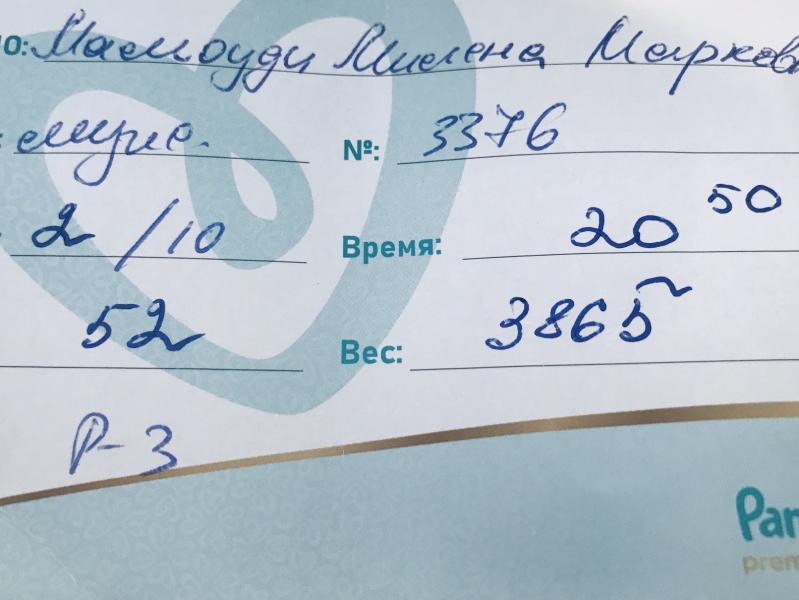 о: Мамоуди Милена Марков
: №: 3376
2/10 Время: 20 50
52 Вес: 3865
P-3
Pam
prem